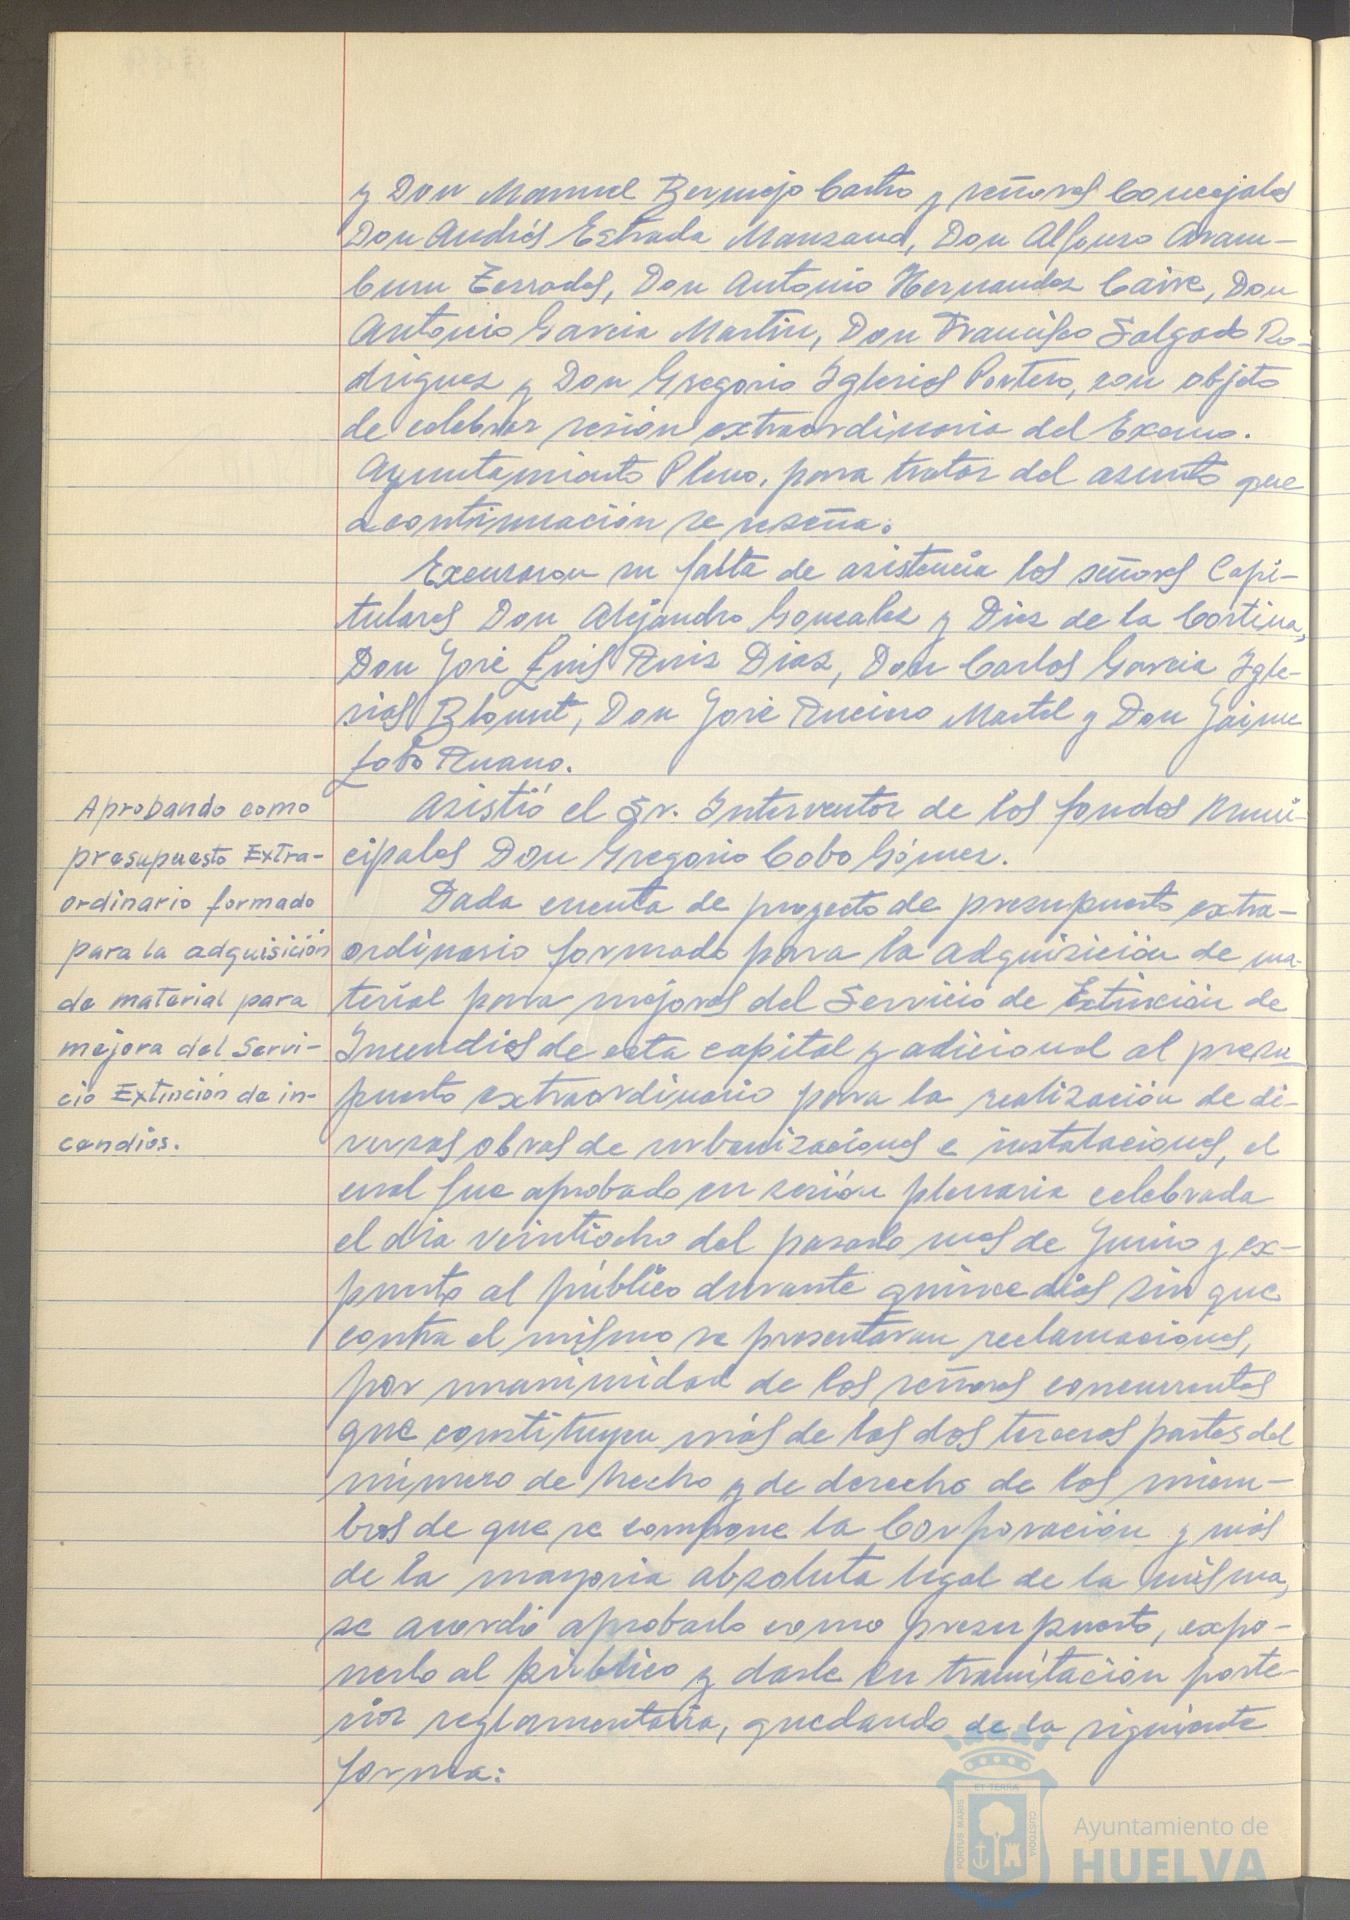 y Don Manuel Bermejo Castro y señores Concejales
Don Andrés Estrada Manzano, Don Alfonso Aram-
buru Terrades, Don Antonio Hernandez Caire, Don
Antonio Garcia Martin, Don Francisco Salgado Ro-
driguez y Don Gregorio Iglesias Portero, con objeto
de celebrar sesión extraordinaria del Excmo.
Ayuntamiento Pleno, para tratar del asunto que
a continuación se reseña.
Excusaron su falta de asistencia los señores Capi-
tulares Don Alejandro Gonzalez y Diez de la Cortina,
Don José Luis Ruiz Diaz, Don Carlos Garcia Igle-
sias Blount, Don José Ruciero Martel y Don Jaime
Lobo Ruano.
Asistió el Sr. Interventor de los fondos Muni-
cipales Don Gregorio Cobo Gómez.
Aprobando como
presupuesto Extra-
ordinario formado
para la adquisición
de material para
mejora del Servi-
cio Extinción de in-
cendios.
Dada cuenta de proyecto de presupuesto extra-
ordinario formado para la adquisición de ma-
terial para mejoras del Servicio de Extinción de
Incendios de esta capital y adicional al presu-
puesto extraordinario para la realización de di-
versas obras de urbanizaciones e instalaciones, el
cual fue aprobado en sesión plenaria celebrada
el dia veintiocho del pasado mes de Junio y ex-
puesto al público durante quince dias sin que
contra el mismo se presentaran reclamaciones,
por unanimidad de los señores concurrentes
que constituyen más de las dos terceras partes del
número de hecho y de derecho de los miem-
bros de que se compone la Corporación y más
de la mayoria absoluta legal de la misma,
se acordó aprobarlo como presupuesto, expo-
nerlo al público y darle su tramitación poste-
rior reglamentaria, quedando de la siguiente
forma:
ET TERRA
PORTUS MARIS
CUSTODIA
Ayuntamiento de
HUELVA